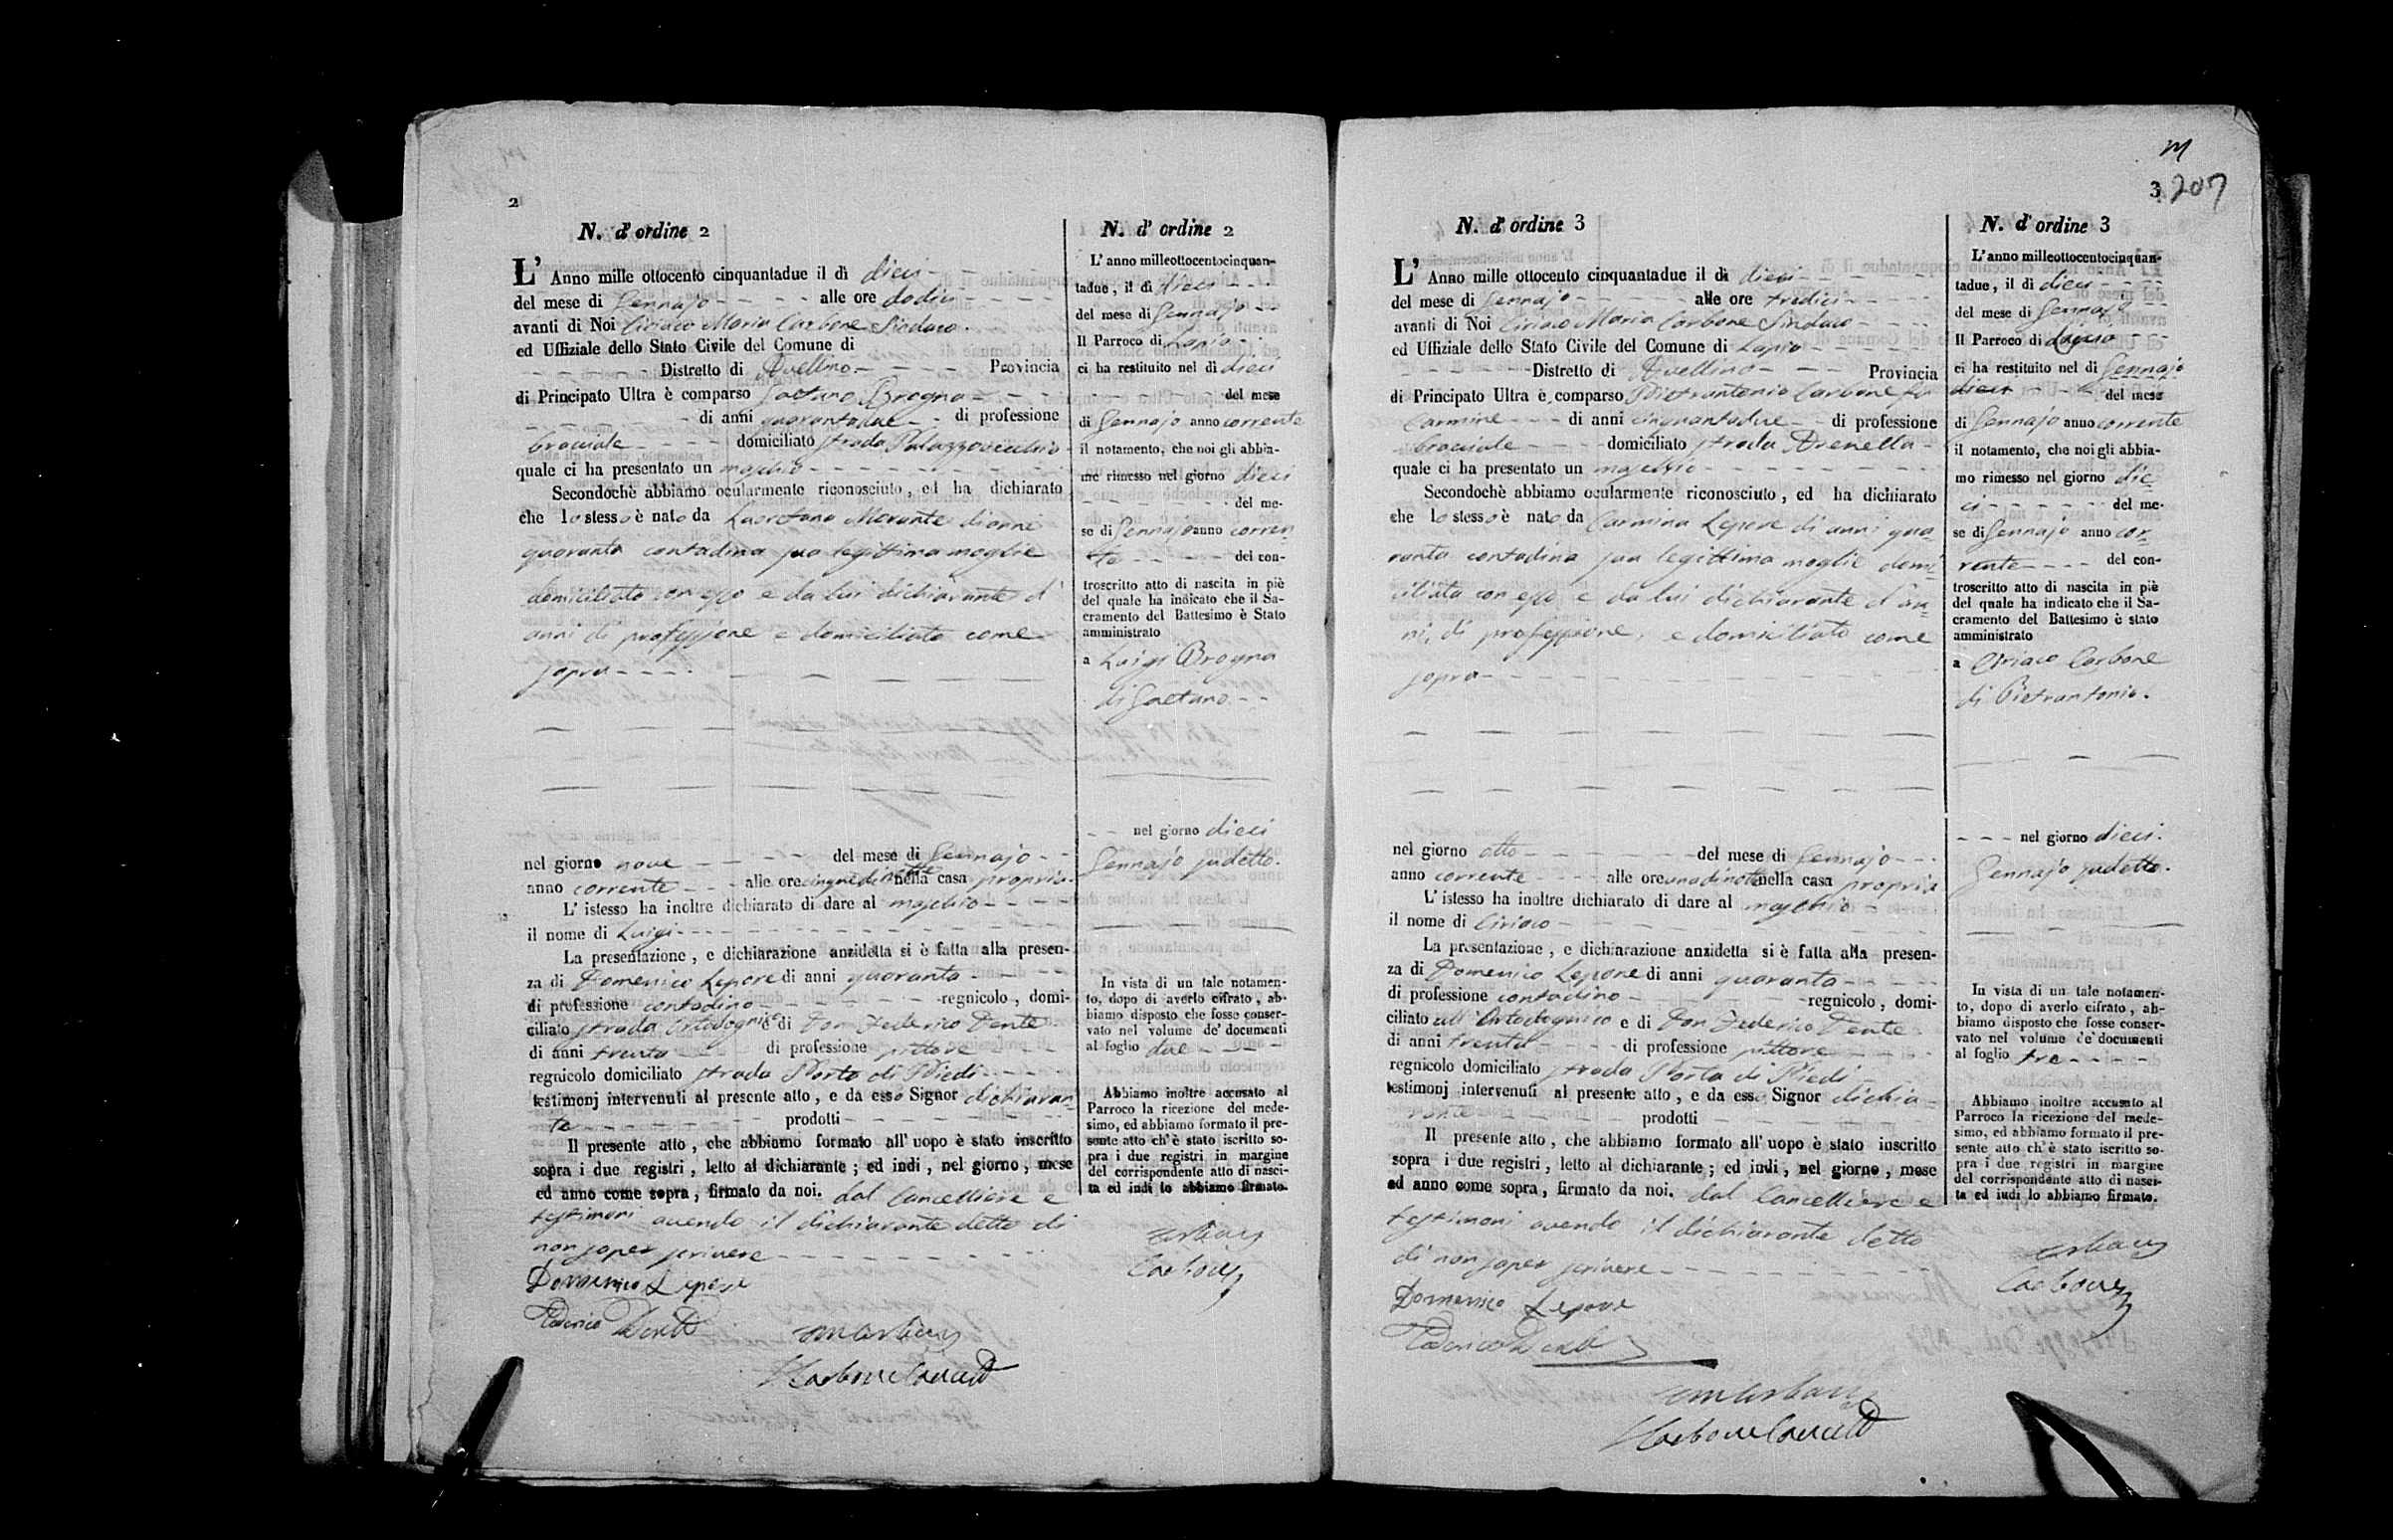 2
N. d' ordine 2
L' Anno mille ottocento cinquantadue il dì dieci
del mese di Gennajo alle ore dodici
avanti di Noi Ciriaco Maria Carbone Sindaco.
ed Uffiziale dello Stato Civile del Comune di
Distretto di Avellino Provincia
di Principato Ultra è comparso Gaetano Brogna
di anni quarantadue di professione
bracciale domiciliato strada Palazzovecchio
quale ci ha presentato un maschio
Secondochè abbiamo ocularmente riconosciuto, ed ha dichiarato
che lo stesso è nato da Lauretana Morante di anni
quaranta contadina sua legittima moglie
domiciliata con esso e da lui dichiarante d'
anni di professione e domiciliato come
sopra
nel giorno nove del mese di Gennajo
anno corrente alle ore cinque di notte nella casa propria
L' istesso ha inoltre dichiarato di dare al maschio
il nome di Luigi
La presentazione, e dichiarazione anzidetta si è fatta alla presen-
za di Domenico Lepore di anni quaranta
di professione contadino regnicolo, domi-
ciliato strada Ortodognico e di Don Federico Dente
di anni trenta di professione pittore
regnicolo domiciliato strada Porta di Piedi
testimonj intervenuti al presente atto, e da esso Signor dichiaran-
te prodotti
Il presente atto, che abbiamo formato all' uopo è stato inscritto
sopra i due registri, letto al dichiarante; ed indi, nel giorno, mese
ed anno come sopra, firmato da noi. dal Cancelliere e
testimoni avendo il dichiarante detto di
non saper scrivere
Domenico Lepore
Federico Dente
N. d' ordine 2
L' anno milleottocentocinquan-
tadue, il dì dieci
del mese di Gennajo
Il Parroco di Lapio
ci ha restituito nel dì dieci
del mese
di Gennajo anno corrente
il notamento, che noi gli abbia-
mo rimesso nel giorno dieci
del me-
se di Gennajo anno corren
te del con-
troscritto atto di nascita in piè
del quale ha indicato che il Sa-
cramento del Battesimo è Stato
amministrato
a Luigi Brogna
di Gaetano
nel giorno dieci
Gennajo sudetto.
In vista di un tale notamen-
to, dopo di averlo cifrato, ab-
biamo disposto che fosse conser-
vato nel volume de' documenti
al foglio due
Abbiamo inoltre accusato al
Parroco la ricezione del mede-
simo, ed abbiamo formato il pre-
sente atto ch' è stato iscritto so-
pra i due registri in margine
del corrispondente atto di nasci-
ta ed indi lo abbiamo firmato.
Carbone
3 207
N. d' ordine 3
L' Anno mille ottocento cinquantadue il dì dieci
del mese di Gennajo alle ore tredici
avanti di Noi Ciriaco Maria Carbone Sindaco
ed Uffiziale dello Stato Civile del Comune di Lapio
Distretto di Avellino Provincia
di Principato Ultra è comparso Pietrantonio Carbone fu
Carmine di anni cinquantadue di professione
bracciale domiciliato strada Arenella
quale ci ha presentato un maschio
Secondochè abbiamo ocularmente riconosciuto, ed ha dichiarato
che lo stesso è nato da Carmina Lepore di anni qua-
ranta contadina sua legittima moglie domi-
ciliata con esso e da lui dichiarante d'an-
ni, di professione, e domiciliato come
sopra
nel giorno otto del mese di Gennajo
anno corrente alle ore una di notte nella casa propria
L' istesso ha inoltre dichiarato di dare al maschio
il nome di Ciriaco
La presentazione, e dichiarazione anzidetta si è fatta alla presen-
za di Domenico Lepore di anni quaranta
di professione contadino regnicolo, domi-
ciliato all' Ortodognico e di Don Federico Dente
di anni trenta di professione pittore
regnicolo domiciliato strada Porta di Piedi
testimonj intervenuti al presente atto, e da esso Signor dichia-
rante prodotti
Il presente atto, che abbiamo formato all' uopo è stato inscritto
sopra i due registri, letto al dichiarante; ed indi, nel giorno, mese
ed anno come sopra, firmato da noi. dal Cancelliere e
testimoni avendo il dichiarante detto
di non saper scrivere
Domenico Lepore
Federico Dente
N. d' ordine 3
L' anno milleottocentocinquan-
tadue, il dì dieci
del mese di Gennajo
Il Parroco di Lapio
ci ha restituito nel dì Gennajo
dieci del mese
di Gennajo anno corrente
il notamento, che noi gli abbia-
mo rimesso nel giorno die-
ci del me-
se di Gennajo anno cor-
rente del con-
troscritto atto di nascita in piè
del quale ha indicato che il Sa-
cramento del Battesimo è stato
amministrato
a Ciriaco Carbone
di Pietrantonio.
nel giorno dieci.
Gennajo sudetto.
In vista di un tale notamen-
to, dopo di averlo cifrato, ab-
biamo disposto che fosse conser-
vato nel volume de' documenti
al foglio tre
Abbiamo inoltre accusato al
Parroco la ricezione del mede-
simo, ed abbiamo formato il pre-
sente atto ch' è stato iscritto so-
pra i due registri in margine
del corrispondente atto di nasci-
ta ed indi lo abbiamo firmato.
Carbone